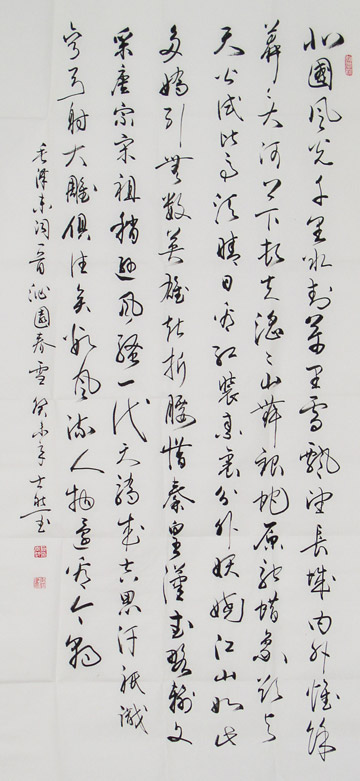 北國風光千里冰封萬里雪飄望長城内外惟餘
莽〻大河上下頓失滔〻山舞銀蛇原馳蠟象欲与
天公試比高須晴日看紅裝素裹分外妖嬈江山如此
多嬌引無數英雄競折腰惜秦皇漢武略輸文
采唐宗宋祖稍遜風騷一代天驕成吉思汗祇識
彎弓射大雕俱往矣數風流人物還看今朝
毛澤東詞一首沁園春雪癸未年書